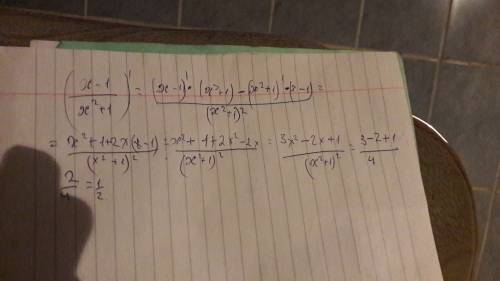 (x-1 / x²+1)' = (x-1)' · (x²+1) - (x²+1)' · (x-1) / (x²+1)² =
= x²+1+2x(x-1) / (x²+1)² = x²+1+2x²-2x / (x²+1)² = 3x²-2x+1 / (x²+1)² = 3-2+1 / 4
2/4 = 1/2